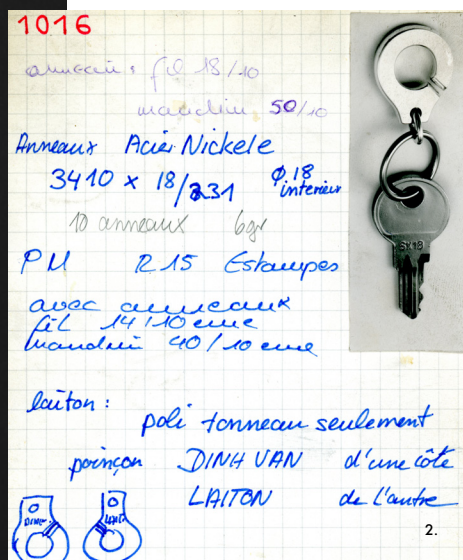 1016
anneau : fil 18/10
mandrin 50/10
Anneaux Acier Nickele
3410 x 18/231 Ø 18
interieur
10 anneaux 6gr
PM R15 Estampes
avec anneaux
fil 14/10 eme
mandrin 40/10 eme
SX18
laiton :
poli tonneau seulement
poinçon DINH VAN d'une côte
LAITON de l'autre
2.